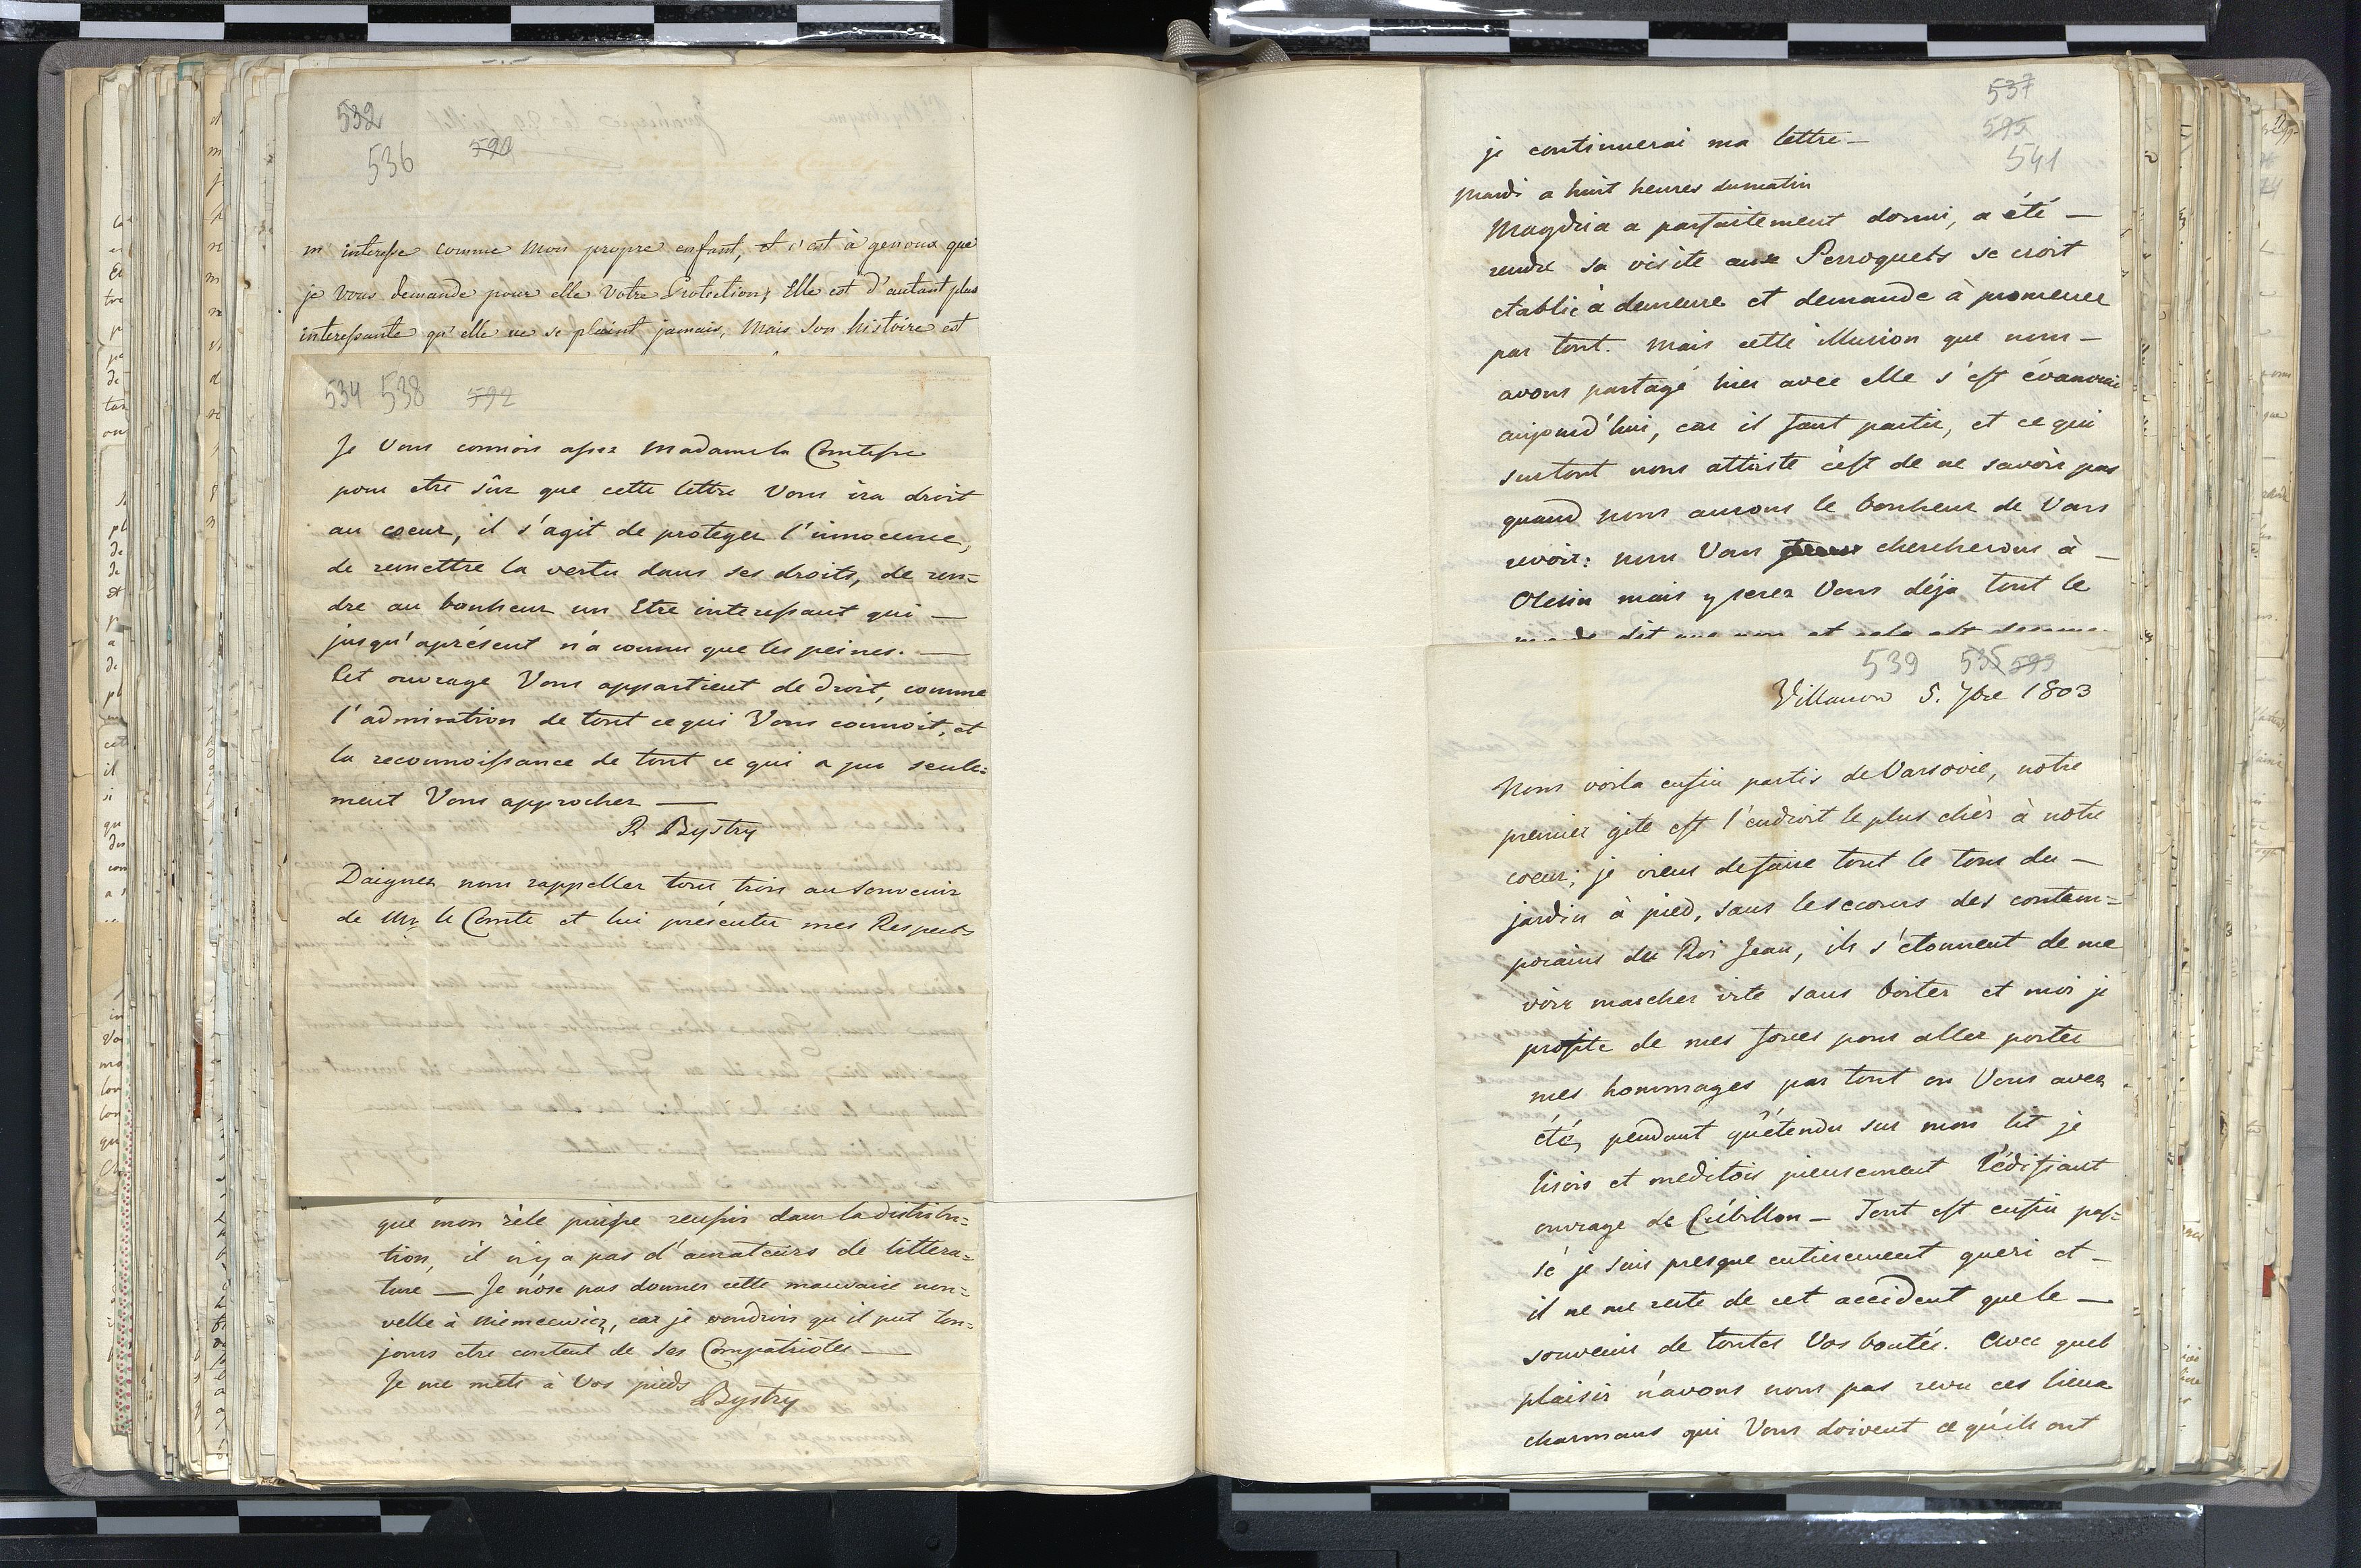 532
536 590
m'interesse comme mon propre enfant, et c'est à genoux que
je vous demande pour elle votre Protection; Elle est d'autant plus
interessante qu'elle ne se plaint jamais, Mais son histoire est
534 538 592
Je Vous connois assez Madame la Comtesse
pour etre sûr que cette lettre Vous ira droit
au coeur, il s'agit de proteger l'innocence,
de remettre la vertu dans ses droits, de ren=
dre au bonheur un Etre interessant qui —
jusqu'aprésent n'a connu que les peines. —
Cet ouvrage Vous appartient de droit, comme
l'admiration de tout ce qui Vous connoit, et
la reconnoissance de tout ce qui a pu seule=
ment Vous approcher —
P. Bystry
Daignez nous rappeller tous trois au souvenir
de Mr le Comte et lui présenter mes Respects
que mon zèle puisse reussir dans la distribu=
tion, il n'y a pas d'amateurs de littera=
ture — Je n'ose pas donner cette mauvaise nou=
velle à Niemcewicz, car je voudrois qu'il put tou=
jours etre content de ses Compatriotes —
Je me mets à Vos pieds
Bystry
537
595
541
je continuerai ma lettre —
Mardi a huit heures du matin
Magdzia a parfaitement dormi, a été —
rendre sa visite aux Perroquets se croit
etablie à demeure et demande à promener
par tout. Mais cette illusion que nous —
avons partagé hier avec elle s'est évanouie
aujourd'hui, car il faut partir, et ce qui
surtout nous attriste c'est de ne savoir pas
quand nous aurons le bonheur de Vous
revoir: nous Vous chercherons à —
Olesin mais y serez Vous déja tout le
monde dit que non et cela est
539 535 593
Villanow 5. 7bre 1803
Nous voila enfin partis de Varsovie, notre
premier gite est l'endroit le plus chèr à notre
coeur; je viens de faire tout le tour du —
jardin à pied, sans le secours des contem=
porains du Roi Jean, ils s'etonnent de me
voir marcher vite sans boiter et moi je
profite de mes forces pour aller porter
mes hommages par tout ou Vous avez
été, pendant qu'étendu sur mon lit je
lisois et meditois pieusement l'édifiant
ouvrage de Crébillon — Tout est enfin pas=
sé je suis presque entierement gueri et —
il ne me reste de cet accident que le —
souvenir de toutes Vos bontés. Avec quel
plaisir n'avons nous pas revu ces lieux
charmans qui Vous doivent ce qu'ils ont